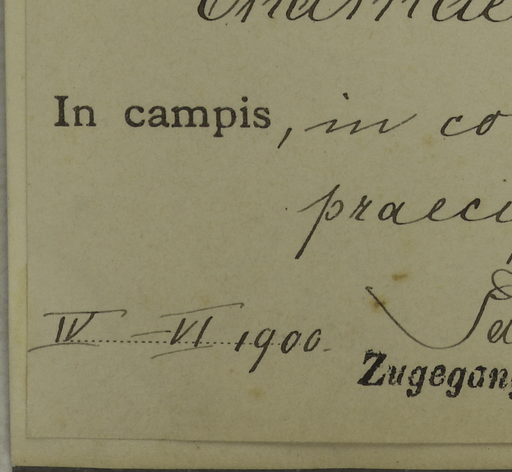 In campis, in co
praeci
IV – VI 1900.
Zugegang